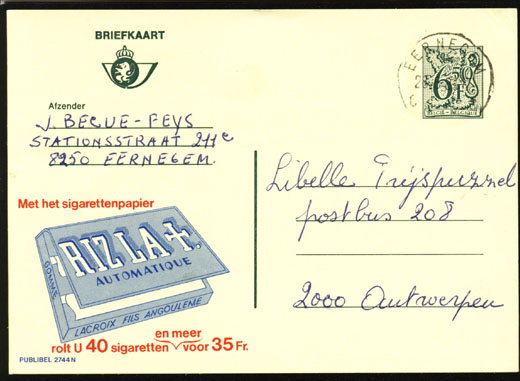 BRIEFKAART
EERNEGEM
6,50 F
BELGIE - BELGIQUE
Afzender
J. BECUE-FEYS
STATIONSSTRAAT 211c
8250 EERNEGEM
Libelle Prijspuzzel
postbus 208
2000 Antwerpen
Met het sigarettenpapier
RIZLA+.
AUTOMATIQUE
GOMMÉ
LACROIX FILS ANGOULEME
en meer
rolt U 40 sigaretten voor 35 Fr.
PUBLIBEL 2744 N